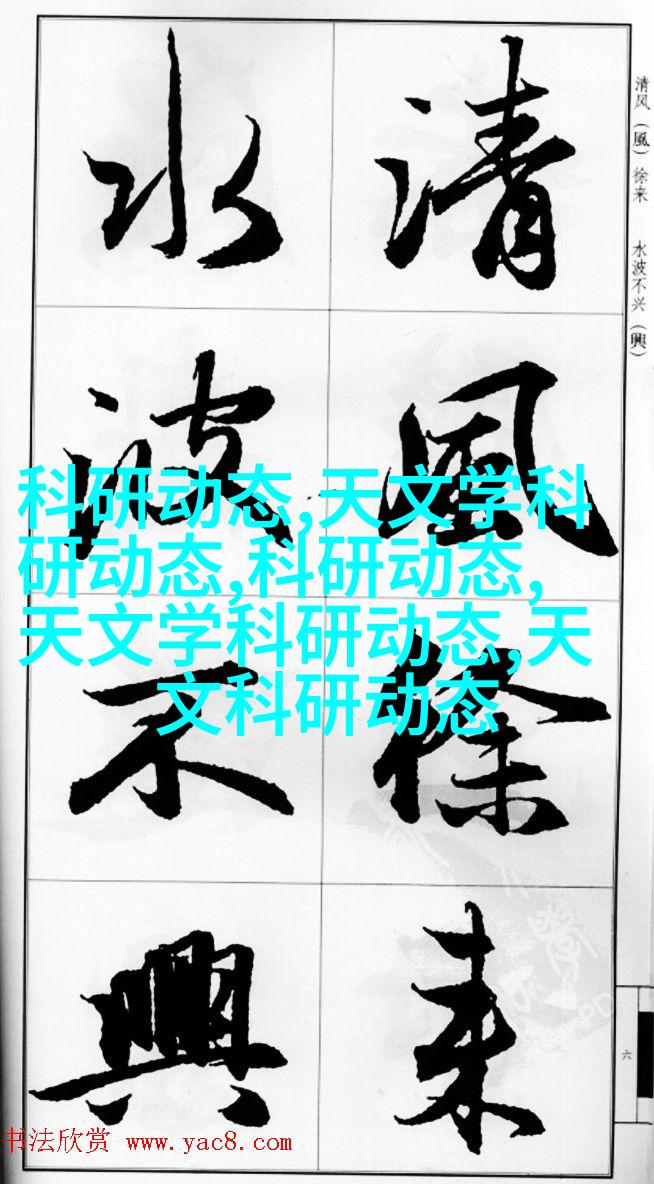 清风(風)徐来 水波不兴(興)
清風徐来
水波不興
科研动态,天文学科
研动态,科研动态,
天文学科研动态,天
文科研动态
六
书法欣赏 www.yac8.com